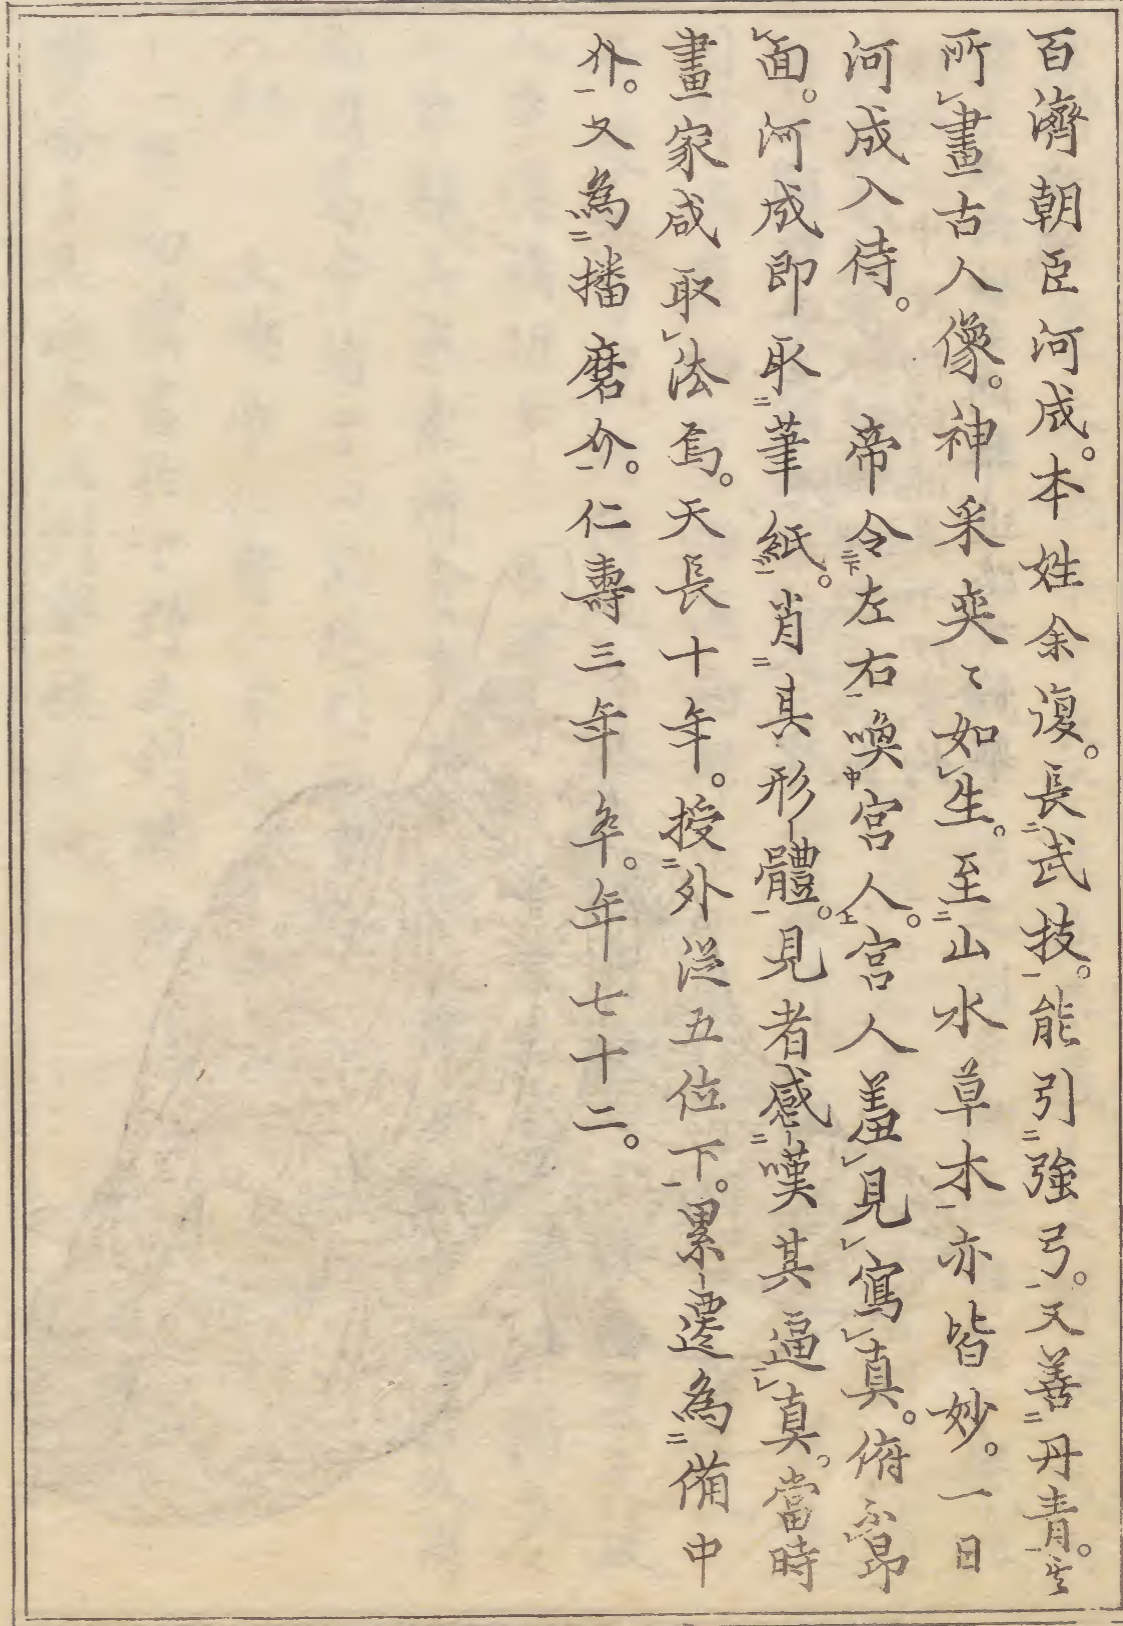 百濟朝臣河成。本姓余復。長武技。能引強弓。又善丹青。其
所畫古人像。神采奕々如生。至山水草木亦皆妙。一日
河成入侍。　帝令左右喚宮人。宮人羞見寫真。俯不昂
面。河成即取筆紙。肖其形體。見者感嘆其逼真。當時
畫家咸取法焉。天長十年。授外從五位下。累遷為備中
介。又為播磨介。仁壽三年卒。年七十二。